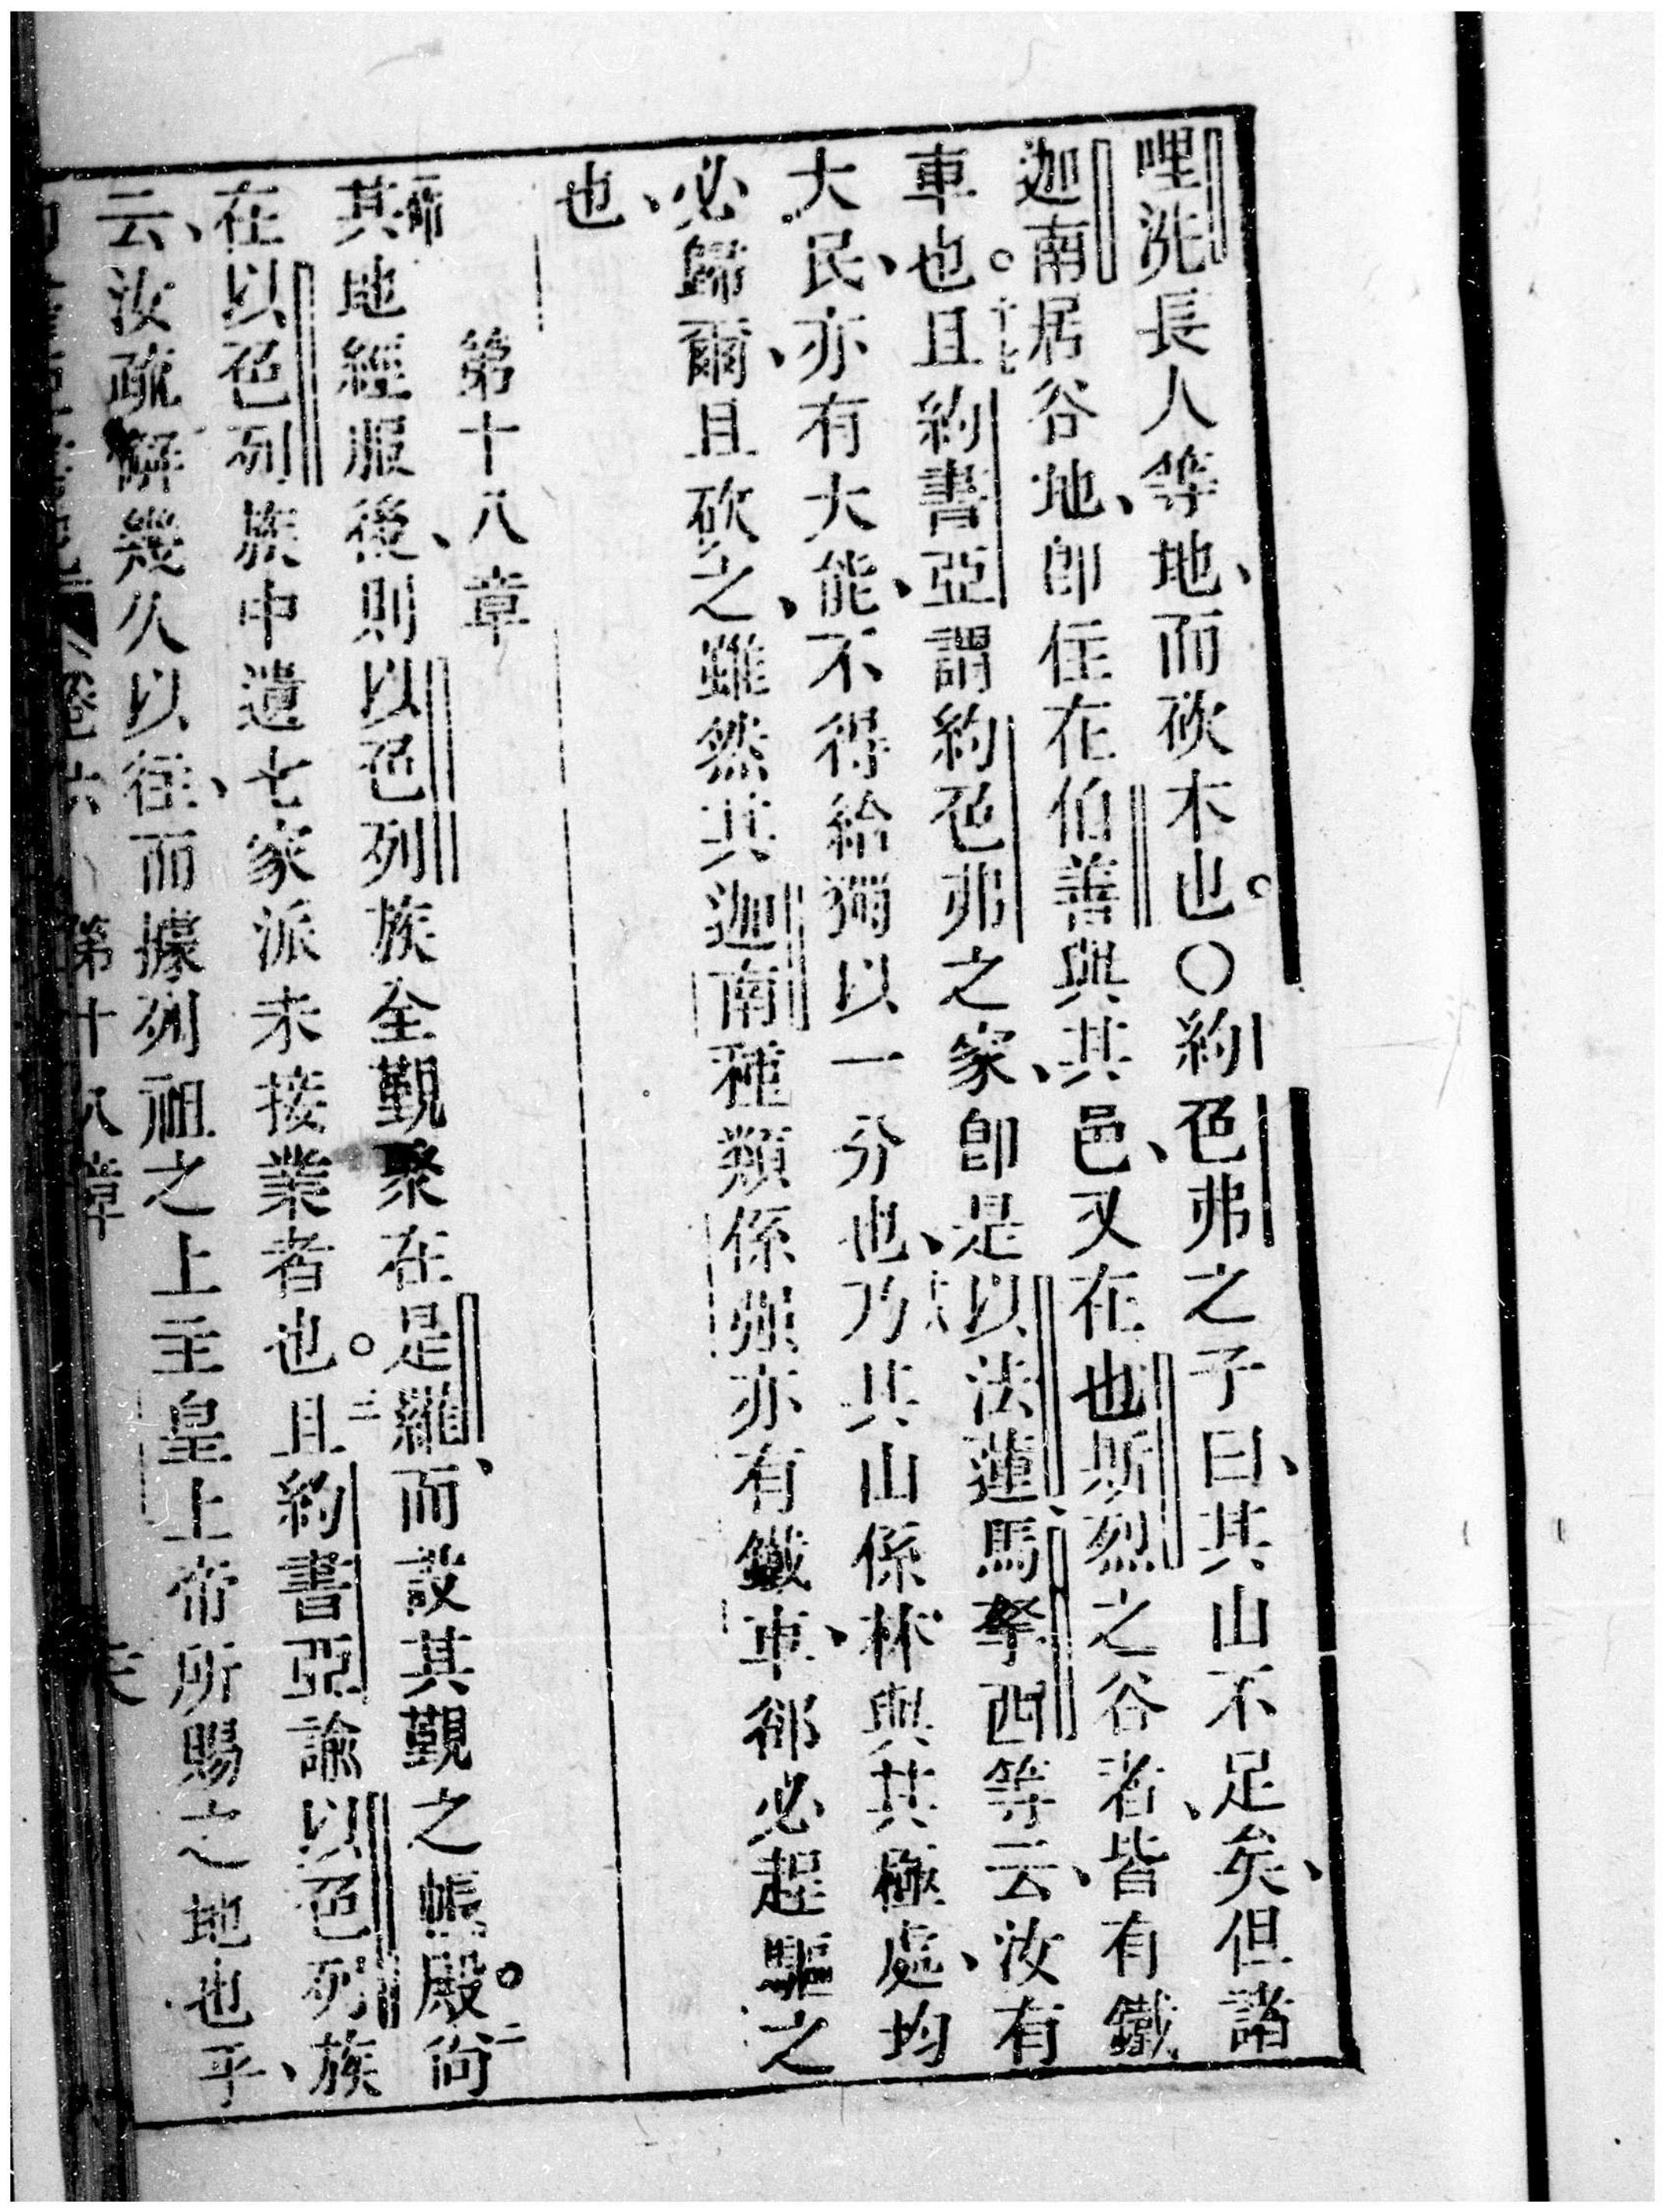 哩洗長人等地、而砍木也。〇約色弗之子曰、其山不足矣、但諸
迦南居谷地、即住在伯善與其邑、又在也斯烈之谷者、皆有鐵
車也。十七且約書亞謂約色弗之家、即是以法蓮、馬拿西等云、汝有
大民、亦有大能、不得給獨以一分也、十八乃其山係林與其極處、均
必歸爾、且砍之、雖然其迦南種類係強亦有鐵車、郤必趕驅之
也、
第十八章
一節其地經服後、則以色列族全覲聚在是羅、而設其覲之帳殿。二尚
在以色列族中遺七家派未接業者也。三且約書亞諭以色列族
云、汝疏懈幾久以往、而據列祖之上主皇上帝所賜之地也乎、
卷六 第十八章